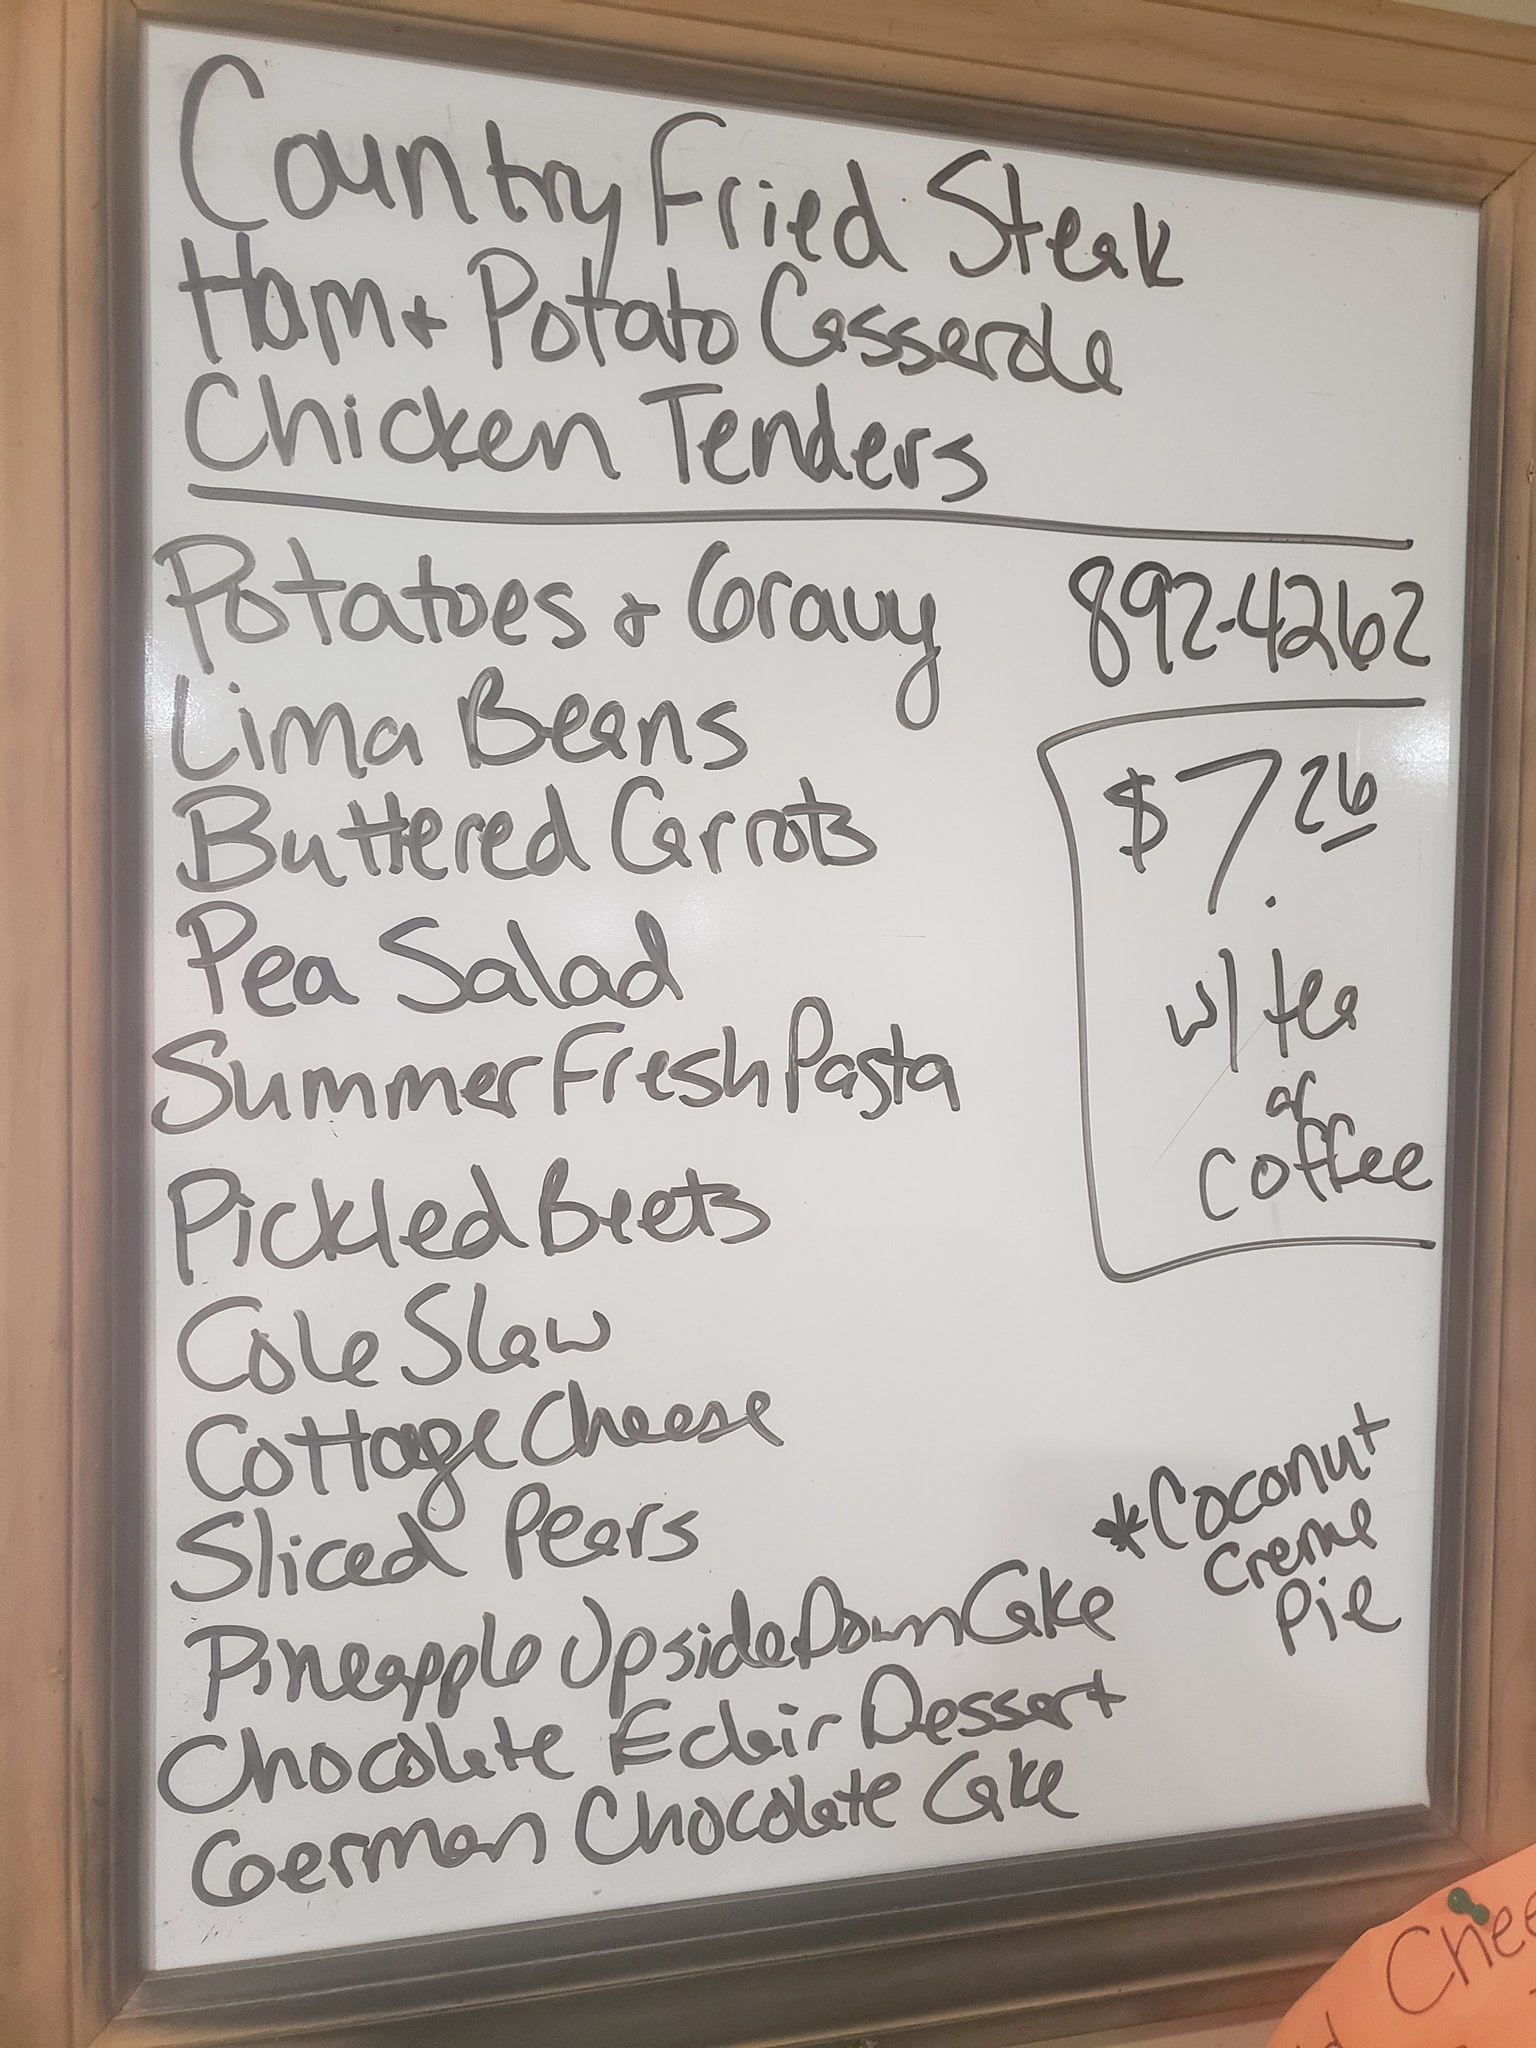 Country Fried Steak
Ham + Potato Casserole
Chicken Tenders
Potatoes + Gravy
892-4262
Lima Beans
Buttered Carrots
$7.26
Pea Salad
w/ tea
Summer Fresh Pasta
or
coffee
Pickled Beets
Cole Slaw
Cottage Cheese
Sliced Pears
*Coconut
Creme
Pie
Pineapple Upside Down Cake
Chocolate Eclair Dessert
German Chocolate Cake